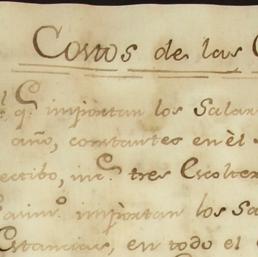 Costos de las C
q.^e importan los Salar
año, constantes en èl
ectibo, inc. tres Escolter
importan los Sa
Estancias, en todo el